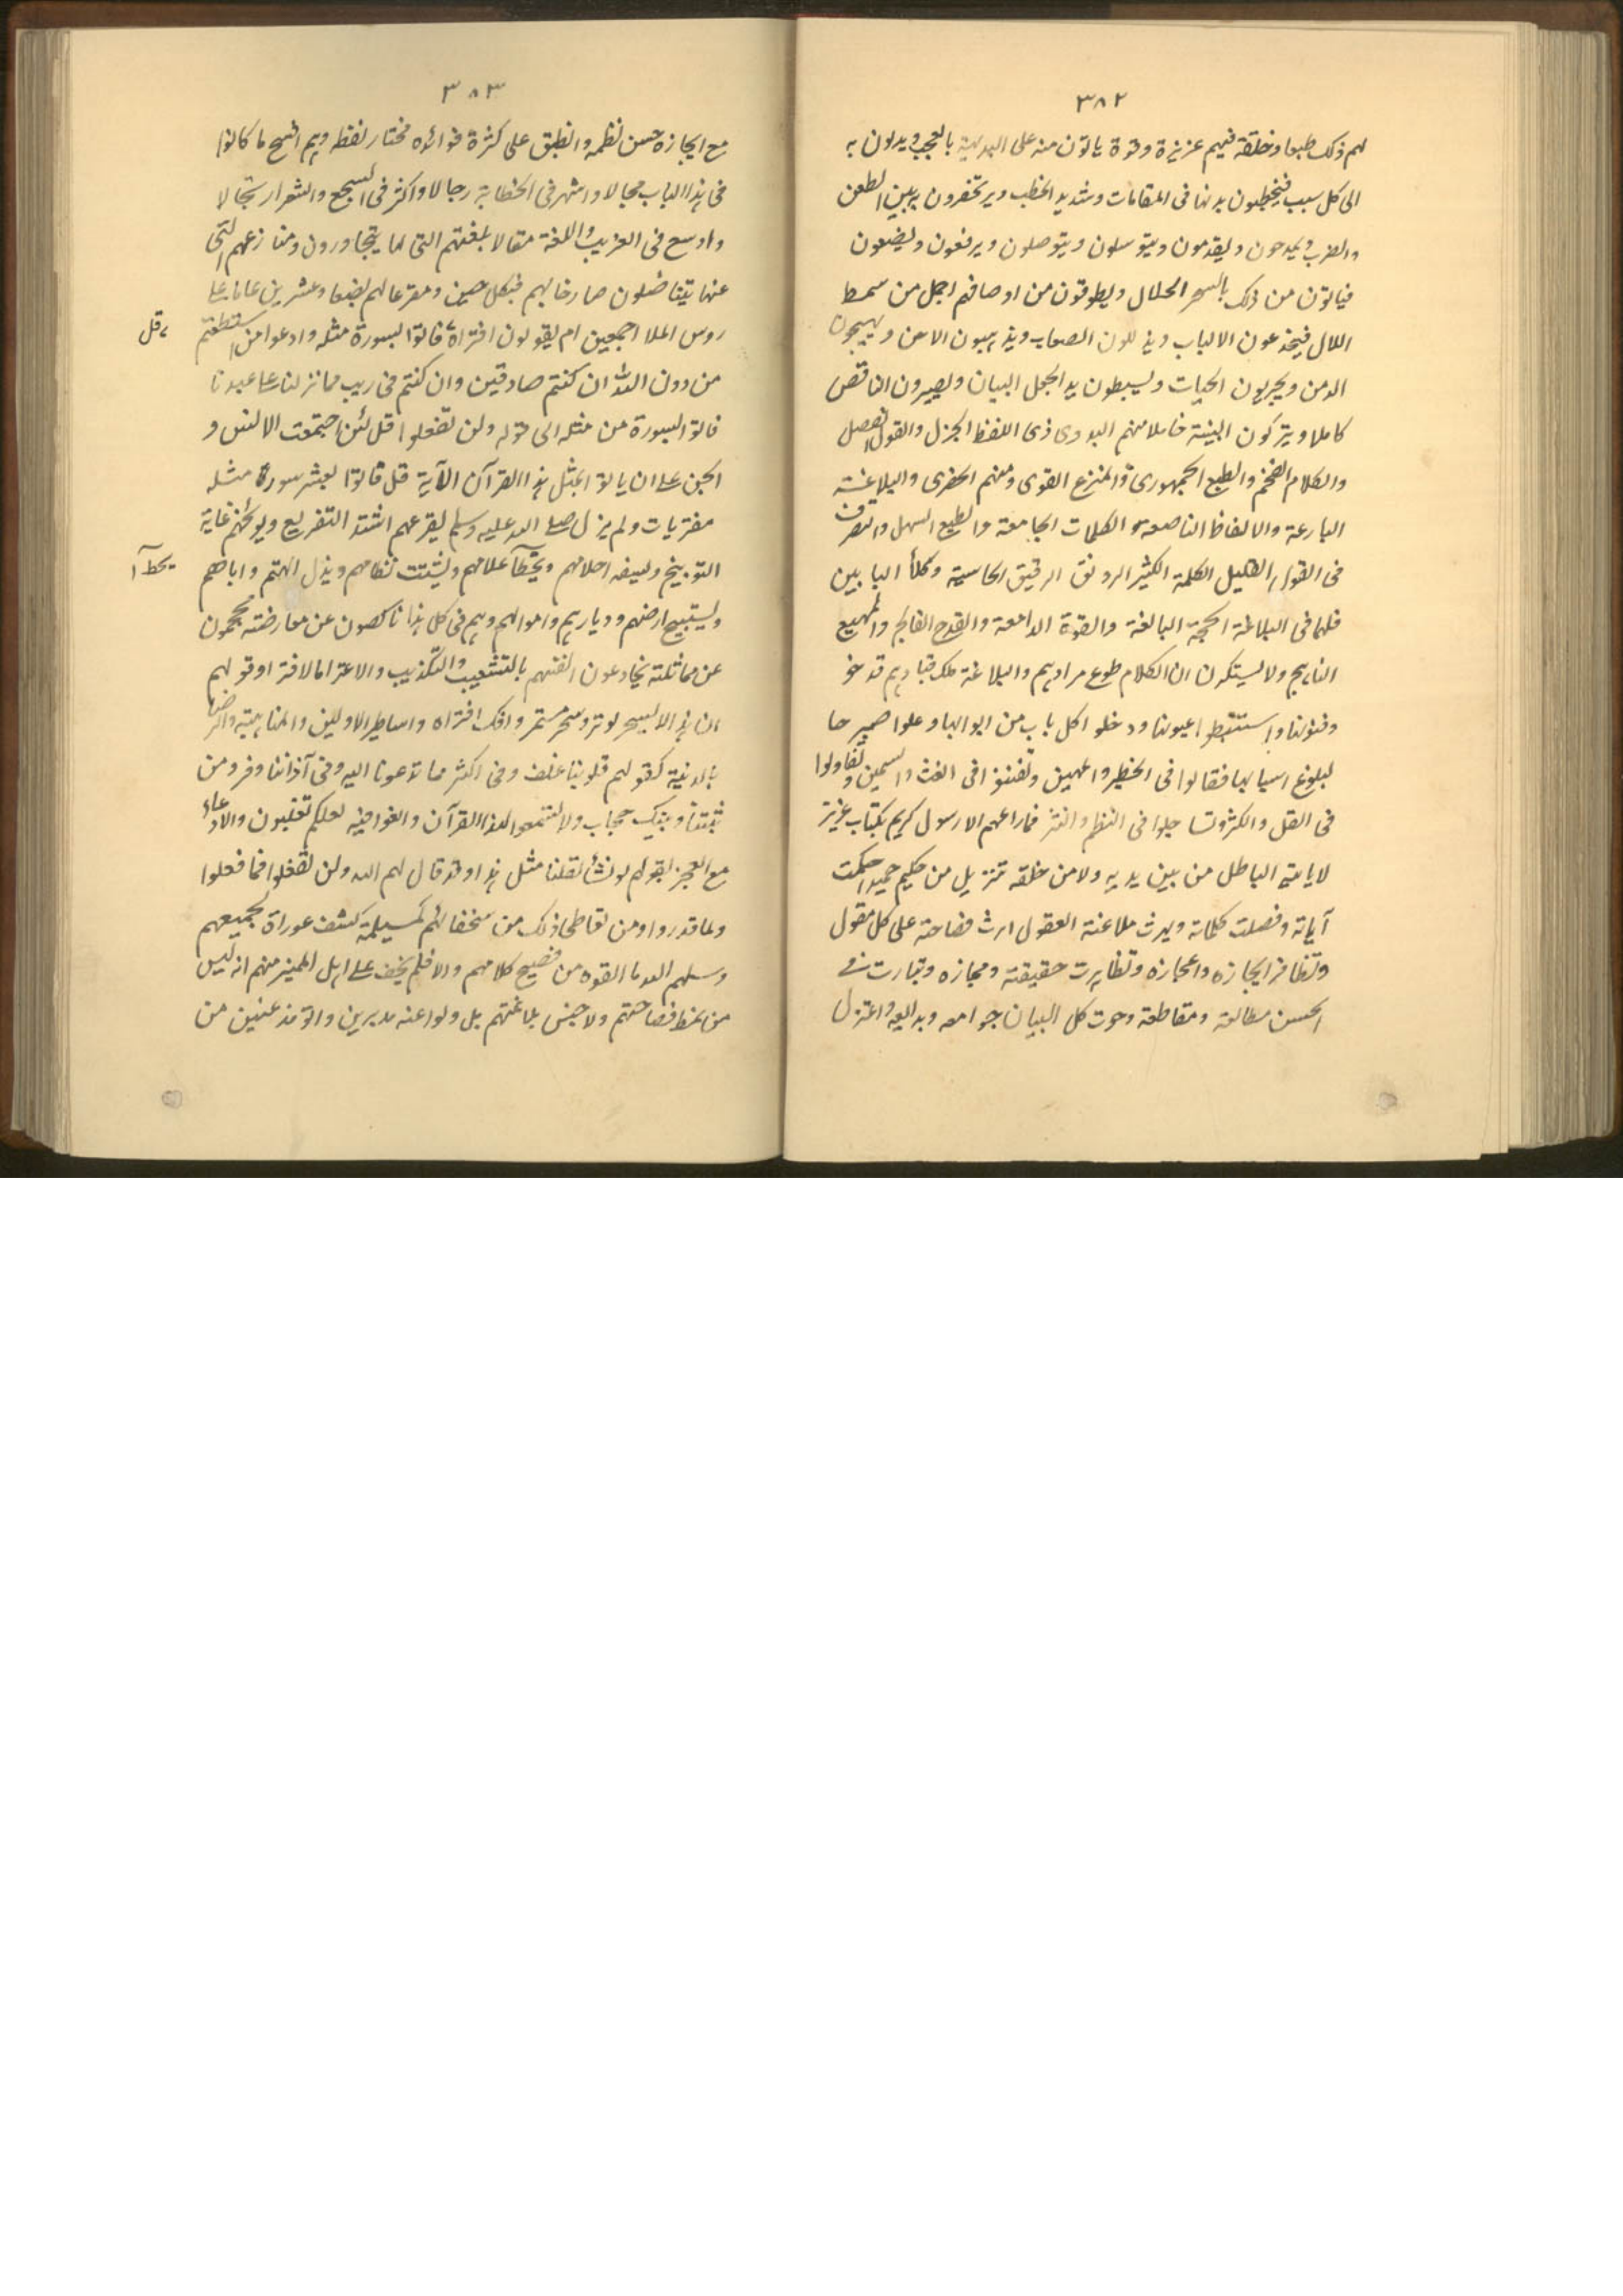 ٣٨٢
لهم ذلك طبعا وخلقة فيهم غزيرة وقوة ياتون منه على البديهية بالعجب ويدلون به
الى كل سبب فيخطبون بديها فى المقامات وشديد الخطب ويرتجزون به بين الطعن
والضرب ويمدحون ويقدمون ويتوسلون ويتوصلون ويرفعون ويضعون
فياتون من ذلك بالسحر الحلال ويطوقون من اوصافهم اجمل من سمط
اللال فيخدعون الالباب ويذللون الصعاب ويذهبون الاحن ويهيجون
الدمن ويجريون الحيات ويسبطون يد الجعل البيان ويصيرون الناقص
كاملا ويتركون البنية خاملا منهم البدوى ذى اللفظ الجزل والقول الفصل
والكلام الفخم والطبع الجمهورى والمنزع القوى ومنهم الحضرى والبلاغة
البارعة والالفاظ الناصعة الكلمات الجامعة والطبع السهل والتصرف
فى القول القليل الكلفة الكثير الرونق الرقيق الحاسية وكلا البابين
فلهما فى البلاغة الحجة البالغة والقوة الدامغة والقدح الفالج والمهيع
الناهج ولا يستكون ان الكلام طوع مرادهم والبلاغة ملك قيادهم قد خو
وفنونها واستنبطوا عيونها ودخلوا كل باب من ابوابها وعلوا صميرحا
لبلوغ اسبابها فقالوا فى الخطير والمهين وتفننوا فى الغث والسمين وتقاولوا
فى القل والكثر وتساجلوا فى النظم والنثر فما راعهم الا رسول كريم بكتاب عزيز
لا ياتيه الباطل من بين يديه ولا من خلفه تنزيل من حكيم حميد احكمت
آياته وفصلت كلماته وبهرت بلاغته العقول ارث فصاحته على كل مقول
وتظافر ايجازه واعجازه وتظاهرت حقيقته ومجازه وتبارت فى
الحسن مطالعه ومقاطعه وحوت كل البيان جوامعه وبدايعه واعتزل
٣٨٣
مع ايجازه حسن نظمه وانطبق على كثرة فوائده مختار لفظه وهم افسح ما كانوا
فى هذا الباب مجالا واشهر فى الخطابة رجالا واكثر فى السجع والشعر ارتجالا
واوسع فى الغريب واللغة مقالا بلغتهم التى لها يتحاورون ومنازعهم التى
عنها يتناضلون صارخا بهم فى كل حين ومقرعا لهم بضعا وعشرين عاما على
روس الملا اجمعين ام يقولون افتراه فاتوا بسورة مثله وادعوا من استطعتم
قل
من دون الله ان كنتم صادقين وان كنتم فى ريب مما نزلنا على عبدنا
فاتوا بسورة من مثله الى قوله ولن تفعلوا قل لئن اجتمعت الانس و
الجن على ان ياتوا بمثل هذا القرآن الآية قل فاتوا بعشر سورة مثله
مفتريات ولم يزل صلى الله عليه وسلم يقرعهم اشد التقريع ويوبخهم غاية
التوبيخ ويسفه احلامهم ويحط آعلامهم ويشتت نظامهم ويذل الهتهم واباهم
يحط آ
ويستبيح ارضهم وديارهم واموالهم وهم فى كل هذا ناكصون عن معارضته محجمون
عن مماثلته يخادعون انفسهم بالتشغيب والتكذيب والاغترا مالافترا وقولهم
ان هذا الا سحر يوثر وسحر مستمر وافك افتراه واساطير الاولين والمباهتة والرضا
بالدنية كقولهم قلوبنا غلف وفى اكنة مما تدعونا اليه وفى آذاننا وقر ومن
بيننا وبينك حجاب ولا تسمعوا لهذا القرآن والغوا فيه لعلكم تغلبون والادعاء
مع العجز بقولهم لو نشأ لقلنا مثل هذا وقد قال لهم الله ولن تفعلوا فما فعلوا
ولما قدروا ومن تعاطى ذلك من سخفائهم كمسيلمة كشف عورا لجميعهم
وسلبهم الله ما القوه من فصيح كلامهم والا فلم يخف على اهل الميز منهم انه ليس
من نمط فصاحتهم ولا جنس بلاغتهم بل ولوا عنه مدبرين واتوا مذعنين من